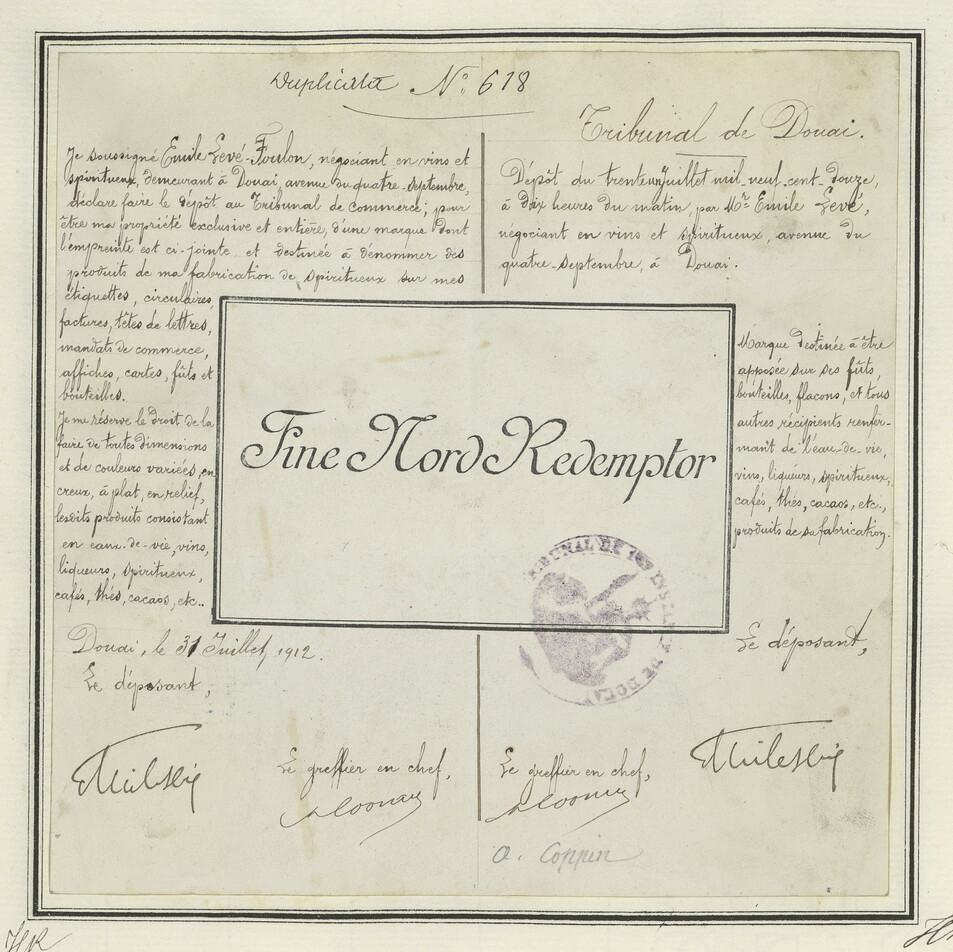 Duplicata Nº 618
Je soussigné Emile Levé-Foulon, négociant en vins et
spiritueux, demeurant à Douai, avenue du quatre-septembre,
déclare faire le dépôt au Tribunal de commerce; pour
être ma propriété exclusive et entière, d'une marque dont
l'empreinte est ci-jointe et destinée à dénommer des
produits de ma fabrication de spiritueux sur mes
étiquettes, circulaires,
factures, têtes de lettres,
mandats de commerce,
affiches, cartes, fûts et
bouteilles.
Je me réserve le droit de la
faire de toutes dimensions
et de couleurs variées, en
creux, à plat, en relief,
lesdits produits consistant
en eaux-de-vie, vins,
liqueurs, spiritueux,
cafés, thés, cacaos, etc..
Douai, le 31 Juillet, 1912.
Le déposant,
Le greffier en chef,
Tribunal de Douai.
Dépôt du trente un juillet mil-neuf-cent-douze,
à dix heures du matin, par Mr Emile Levé,
négociant en vins et spiritueux, avenue du
quatre-septembre, à Douai.
Marque destinée à être
apposée sur ses fûts,
bouteilles, flacons, et tous
autres récipients renfer-
mant de l'eau-de-vie,
vins, liqueurs, spiritueux,
cafés, thés, cacaos, etc.,
produits de sa fabrication.
Fine Nord Redemptor
TRIBUNAL DE 1RE INSTANCE DE DOUAI
Le déposant,
Le greffier en chef,
a. Coppin
HR